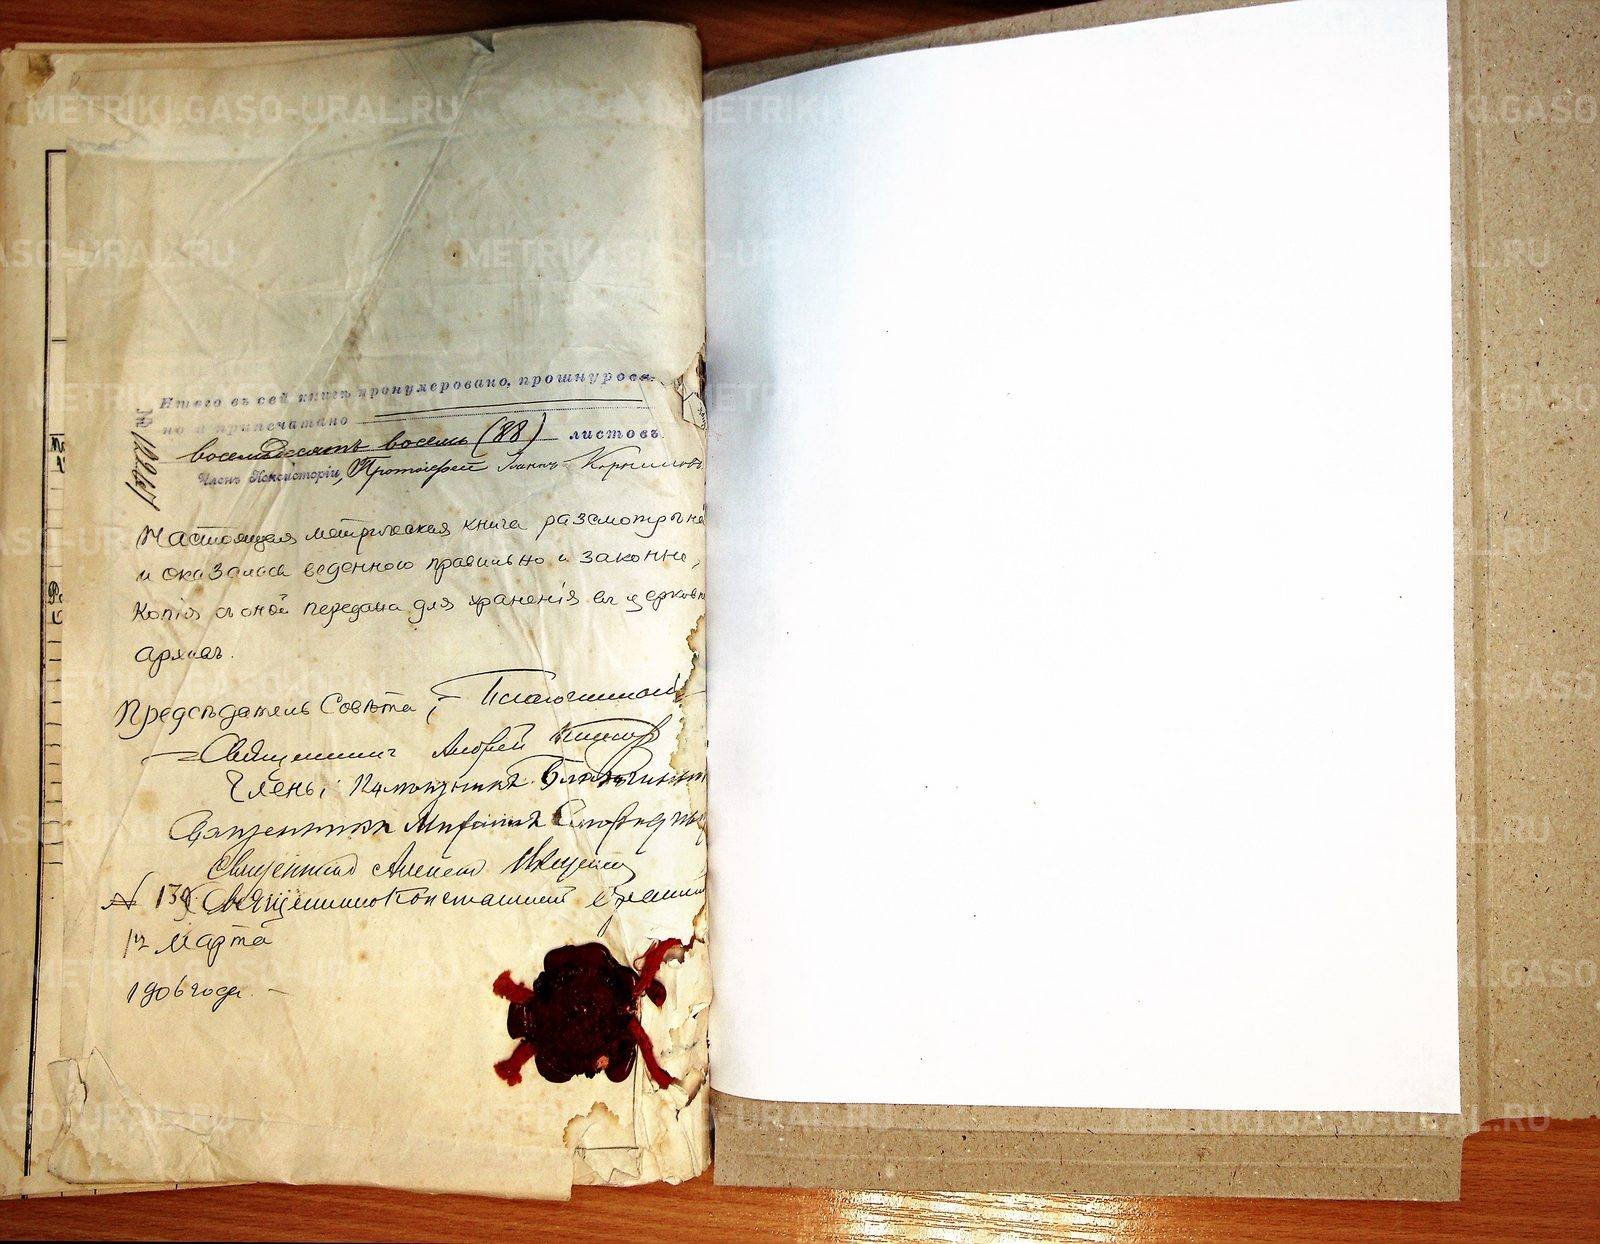 METRIKI.GASO-URAL.RU
Итого въ сей книгѣ пронумеровано, прошнурова-
но и припечатано
восемьдесятъ восемь (88) листовъ
Членъ Консисторіи, Протоіерей Іоаннъ
№
Настоящая метрическая книга разсмотрѣна
и оказалась веденною правильно и законно,
Копія съ оной передана для храненія въ церковн
архивъ.
Предсѣдатель Совѣта,
Священникъ Андрей
Члены: Помощникъ Благочинн
Священникъ
Священникъ Алексей
№ 139 Священникъ Константинъ
марта
1906 года. –